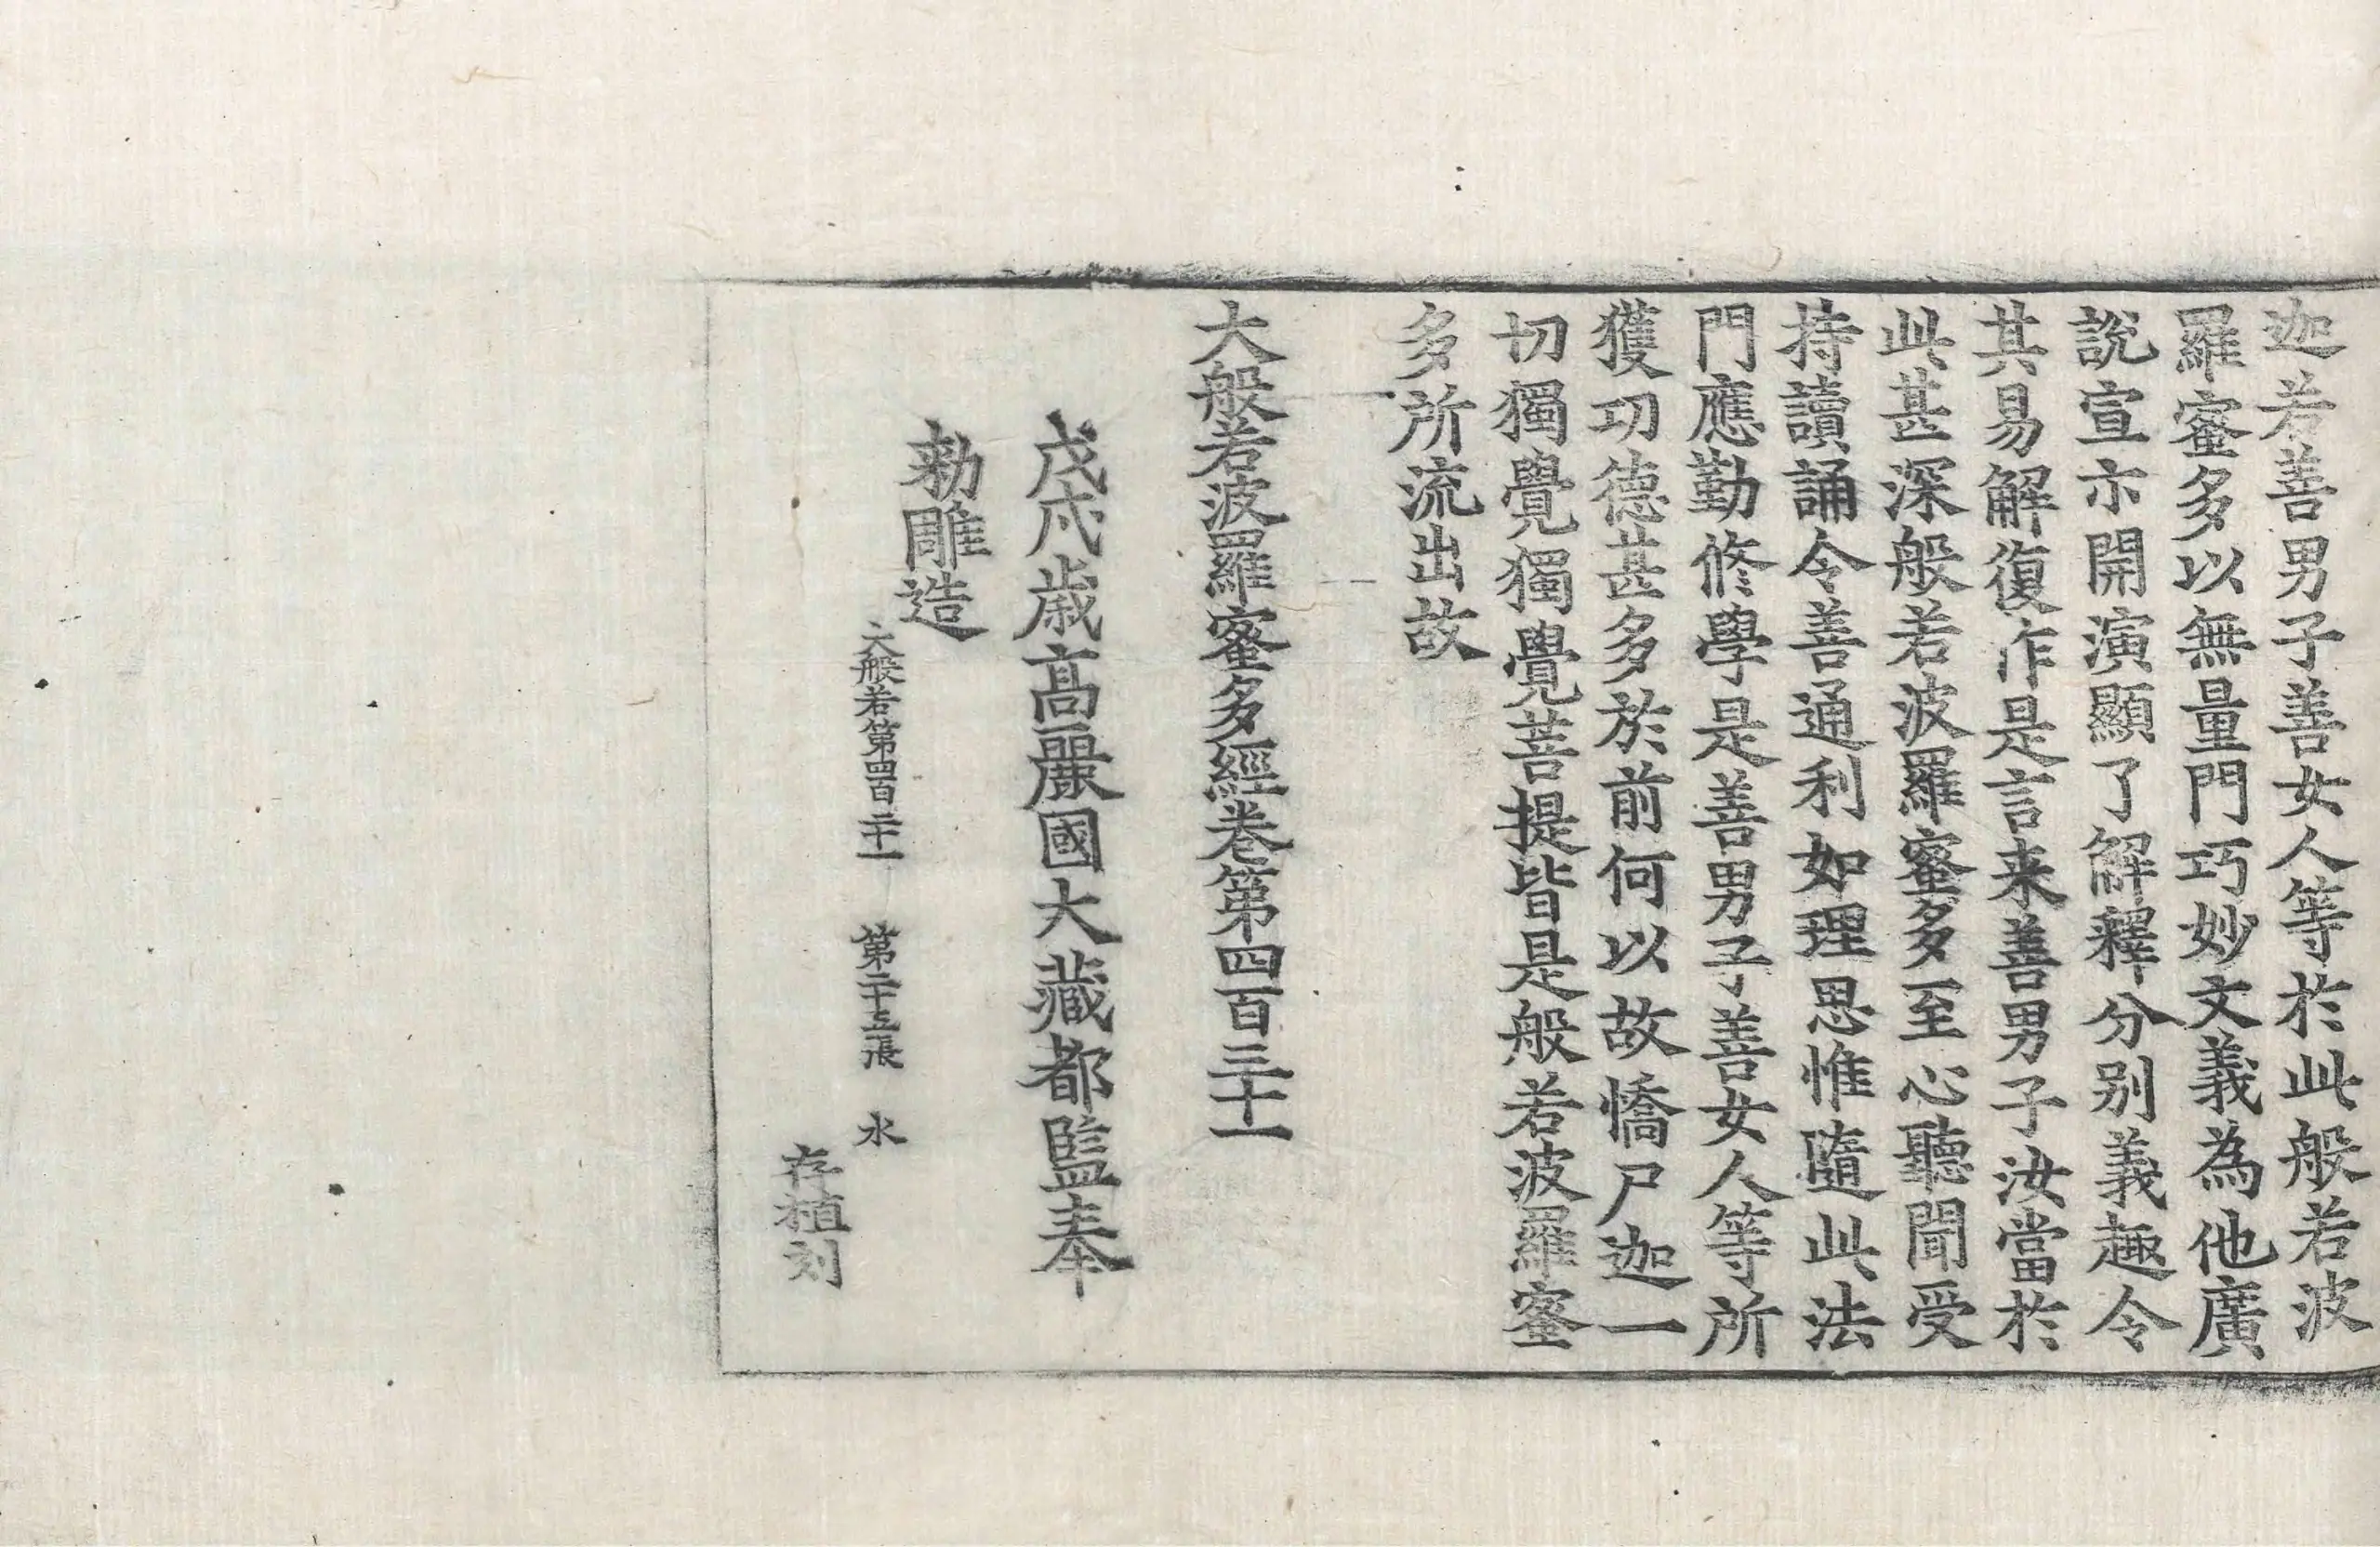 迦若善男子善女人等於此般若波
羅蜜多以無量門巧妙文義為他廣
說宣示開演顯了解釋分別義趣令
其易解復作是言来善男子汝當於
此甚深般若波羅蜜多至心聽聞受
持讀誦令善通利如理思惟隨此法
門應勤修學是善男子善女人等所
獲功德甚多於前何以故憍尸迦一
切獨覺獨覺菩提皆是般若波羅蜜
多所流出故
大般若波羅蜜多經卷第四百三十一
戊戌歲高麗國大藏都監奉
勅雕造
大般若第四百三十一　第二十五張　水
存植刻